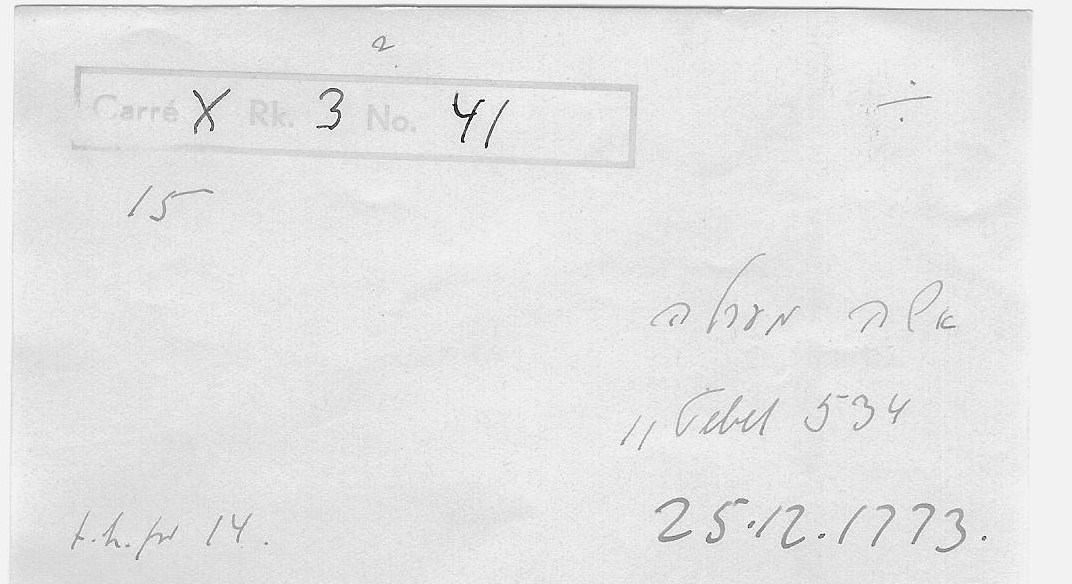 2.
Carré X Rk. 3 No. 41
÷
15
אשה מעולה
11 Tebet 534
25.12.1773.
14.